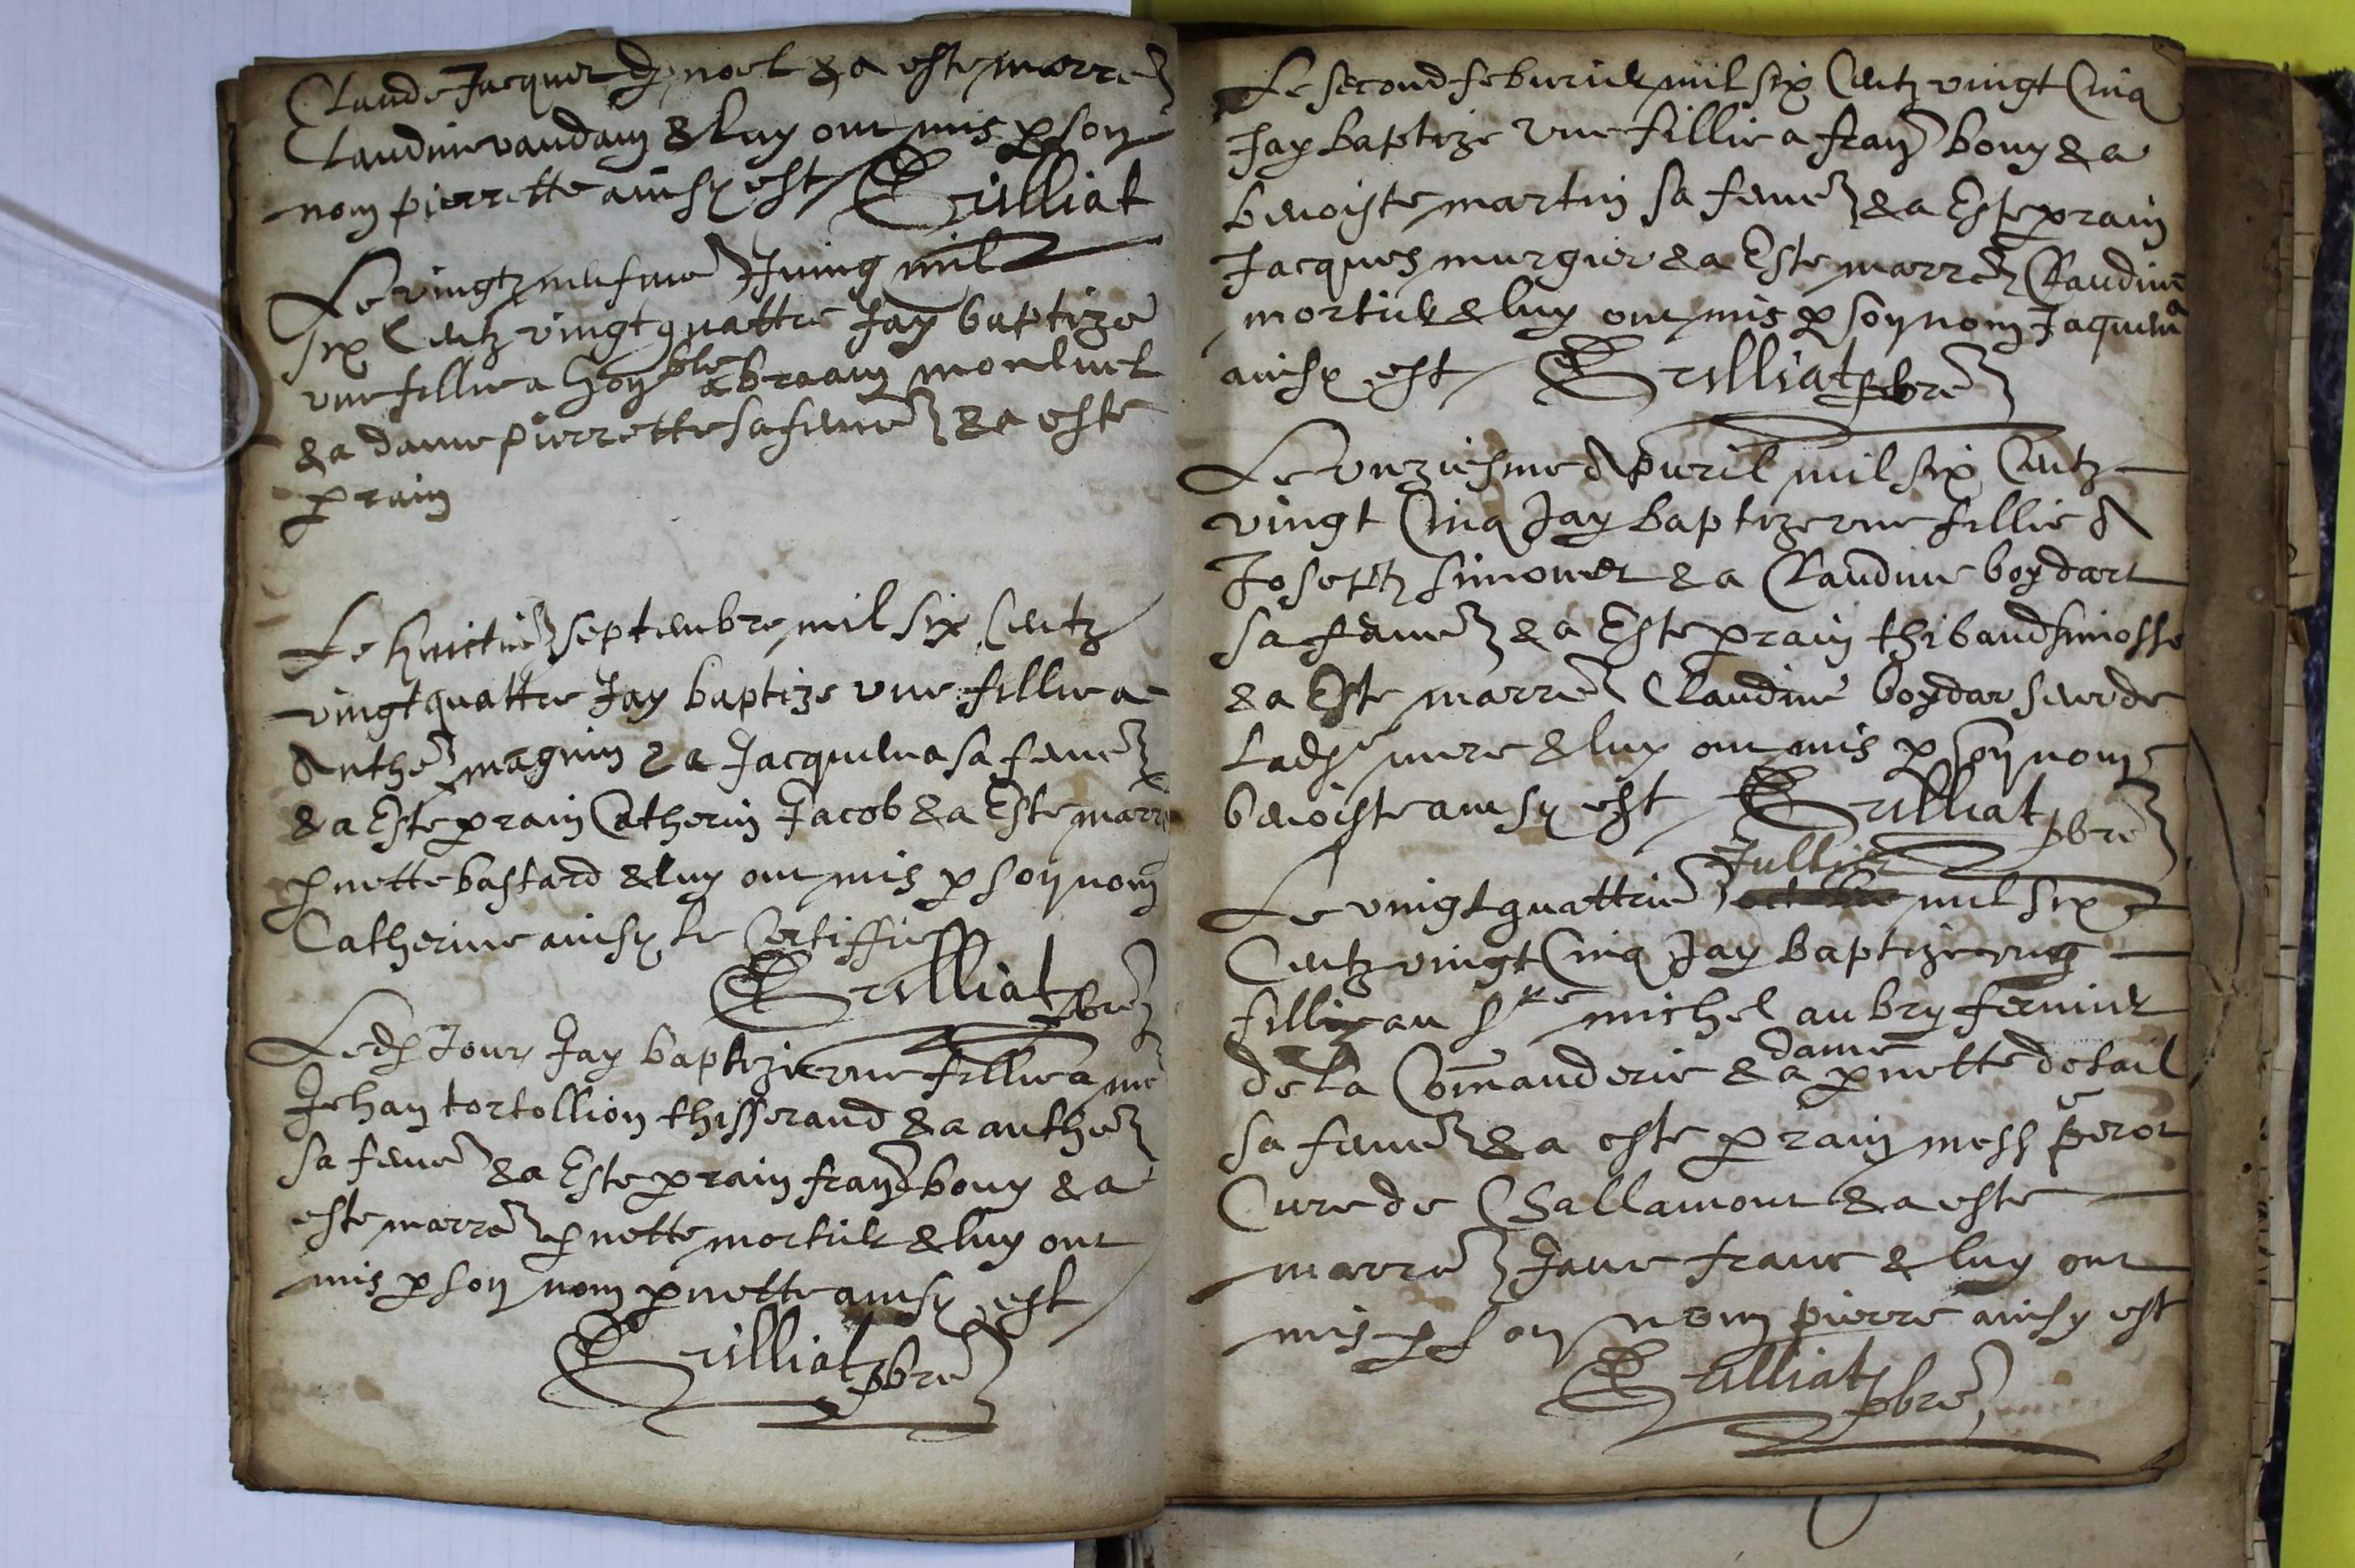 Claude Jacquet noel & a este marre
Claudine vaudan & luy ont mis p son
nom pierrette ainsy est Trilliat
Le vingtz neufme Juing mil
six Centz vingt quattre Jay baptize
une fillie a hon ble abraam monluel
& a dame pierrette sa feme & a este
prain
Le huictie septembre mil six Centz
vingt quattre Jay baptize une fillie a
Anthe magnin & a Jacquema sa feme
& a Este prain Catherin Jacob & a Este marre
pnette bastard & luy ont mis p son nom
Catherine ainsy le Certiffie
Trilliat pbre
Ledt Jour Jay baptize une fillie a me
Jehan tortollion thisserand & a anthe
sa feme & a Este prain franc bouy & a
este marre pnette mortier & luy ont
mis p son nom pnette ainsy est
Trilliat pbre
Le second feburier mil six Centz vingt Cinq
Jay baptize une fillie a franc bouy & a
benoiste martin sa feme & a Este prain
Jacques murgier & a Este marre Claudine
mortier & luy ont mis p son nom Jaquema
ainsy est Trilliat pbre
Le unziesme Apuril mil six Centz
vingt Cinq Jay baptize une fillie A
Joseptz simonet & a Claudine boydart
sa feme & a Este prain thibaud simosse
& a Este marre Claudine boydar seur de
ladte mere & luy ont mis p son nom
benoiste ainsy est Trilliat pbre
Jullie
Le vingt quattrie octobre mil six
Centz vingt Cinq Jay baptize ung
fillie au Sre michel aubry fermier
dame
de la Comanderie & a pnette desail
sa feme & a este prain mess perot
Cure de Challamont & a este
marre Jane franc & luy ont
mis p son nom pierre ainsy est
Trilliat pbre